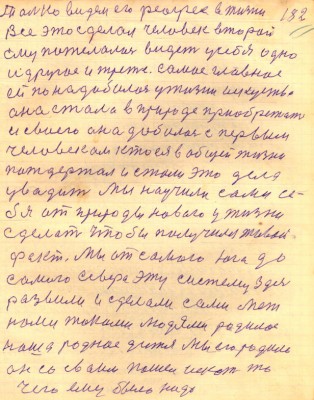 только видем его ресгрес в жизни 132
Все это сделал человек второй
ему пожелалося видеть у себя одно
и другое и трете. самое главное
ей понадобилося у жизни искуство
она стала в природе приобретать
и своего она добилася с первым
человеком кто ся в общей жизни
поддержал и стали это дело
уважать Мы научили сами се-
бя от природы нового у жизни
сделать чтобы получился живой
факт. Мы от самого юга до
самого севера эту систему здея
развили и сделали сами меж
ними такими людями родилося
наша родное дитя Мы его родили
он со своим пошел искат то
чего ему было надо